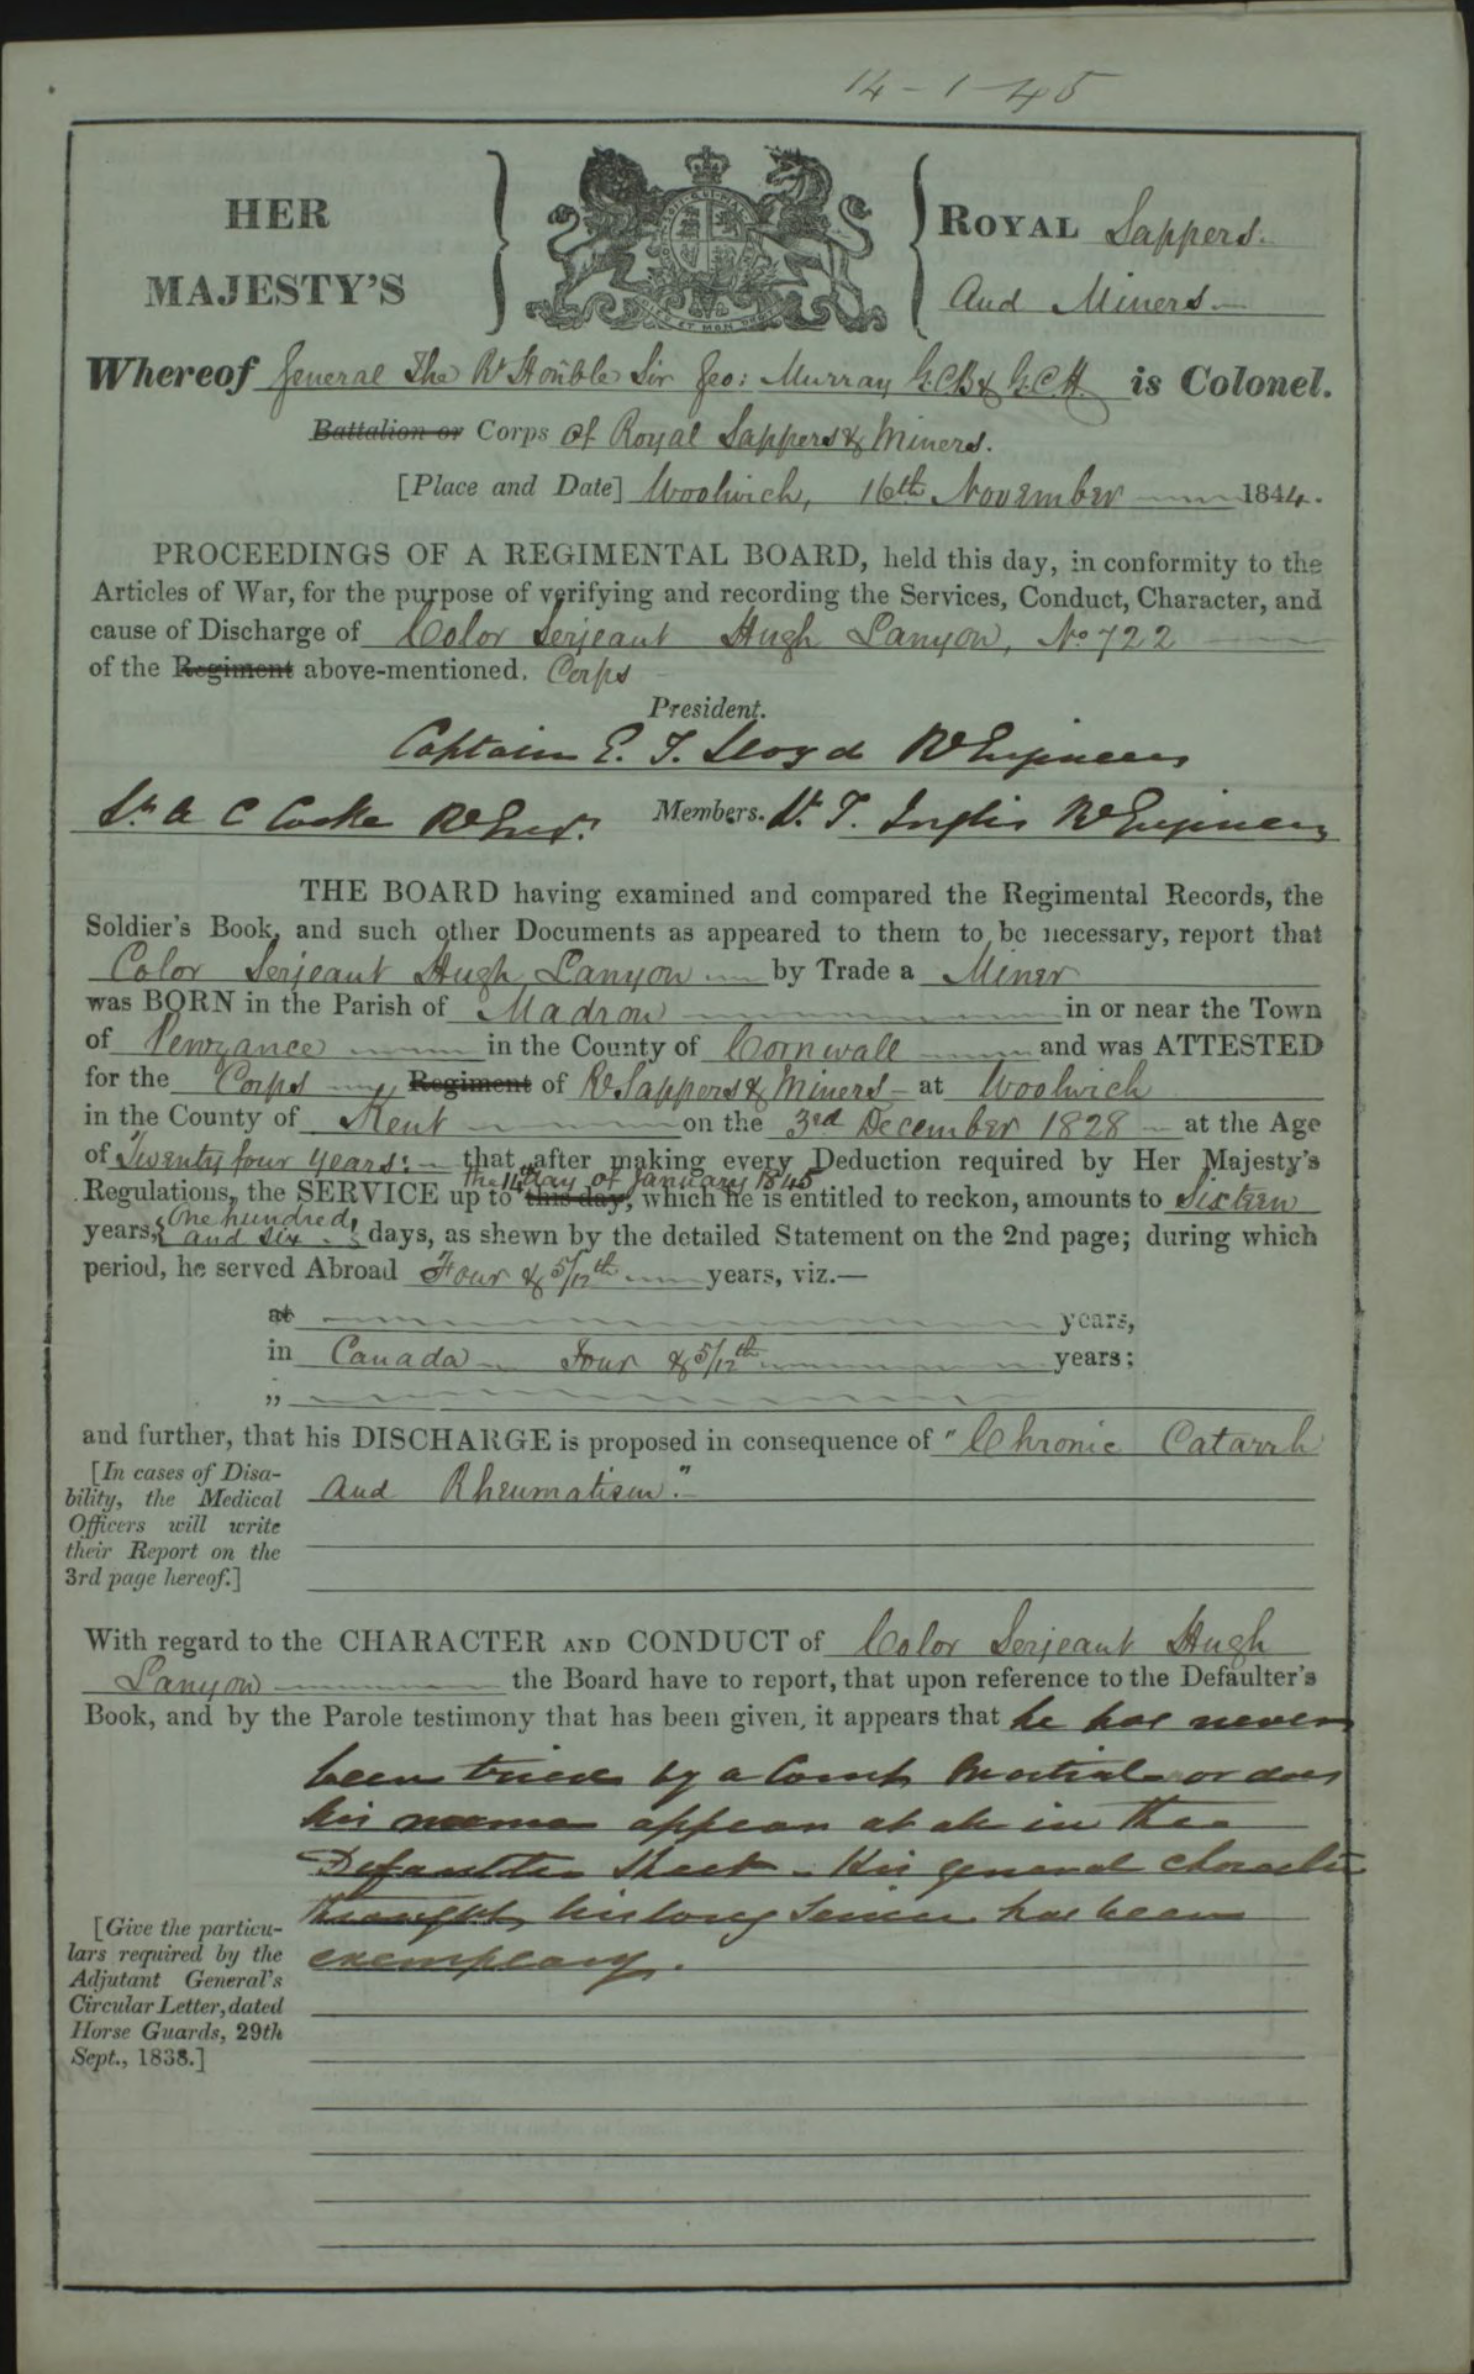 14-1-45
HER
MAJESTY'S
ROYAL Sappers
And Miners
Whereof General The Rt Honble Sir Geo: Murray G.C.B & G.C.H. is Colonel.
Battalion or Corps of Royal Sappers & Miners.
[Place and Date] Woolwich, 16th November 1844.
PROCEEDINGS OF A REGIMENTAL BOARD, held this day, in conformity to the
Articles of War, for the purpose of verifying and recording the Services, Conduct, Character, and
cause of Discharge of Color Serjeant Hugh Lanyon, No 722
of the Regiment above-mentioned. Corps
President.
Captain E. T. Lloyd Rl Engineers
Lt A C Cooke Rl Engrs. Members. Lt. T. Inglis Rl Engineers
THE BOARD having examined and compared the Regimental Records, the
Soldier's Book, and such other Documents as appeared to them to be necessary, report that
Color Serjeant Hugh Lanyon by Trade a Miner
was BORN in the Parish of Madron in or near the Town
of Penzance in the County of Cornwall and was ATTESTED
for the Corps Regiment of Rl Sappers & Miners at Woolwich
in the County of Kent on the 3rd December 1828 at the Age
of Twenty four years: that after making every Deduction required by Her Majesty's
the 14th day of January 1845
Regulations, the SERVICE up to this day, which he is entitled to reckon, amounts to Sixteen
years, One hundred and six days, as shewn by the detailed Statement on the 2nd page; during which
period, he served Abroad Four & 5/12th years, viz.—
at years,
in Canada Four & 5/12th years;
"
and further, that his DISCHARGE is proposed in consequence of "Chronic Catarrh
and Rheumatism."
[In cases of Disa-
bility, the Medical
Officers will write
their Report on the
3rd page hereof.]
With regard to the CHARACTER AND CONDUCT of Color Serjeant Hugh
Lanyon the Board have to report, that upon reference to the Defaulter's
Book, and by the Parole testimony that has been given, it appears that he has never
been tried by a Court Martial or does
his name appear at all in the
Defaulter Sheet - His general character
throughout his long Service has been
exemplary.
[Give the particu-
lars required by the
Adjutant General's
Circular Letter, dated
Horse Guards, 29th
Sept., 1838.]